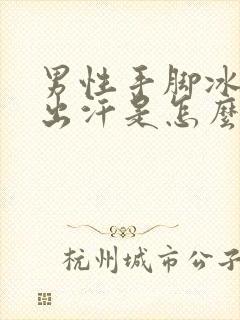 男性手脚冰
出汗是怎麼
杭州城市公子